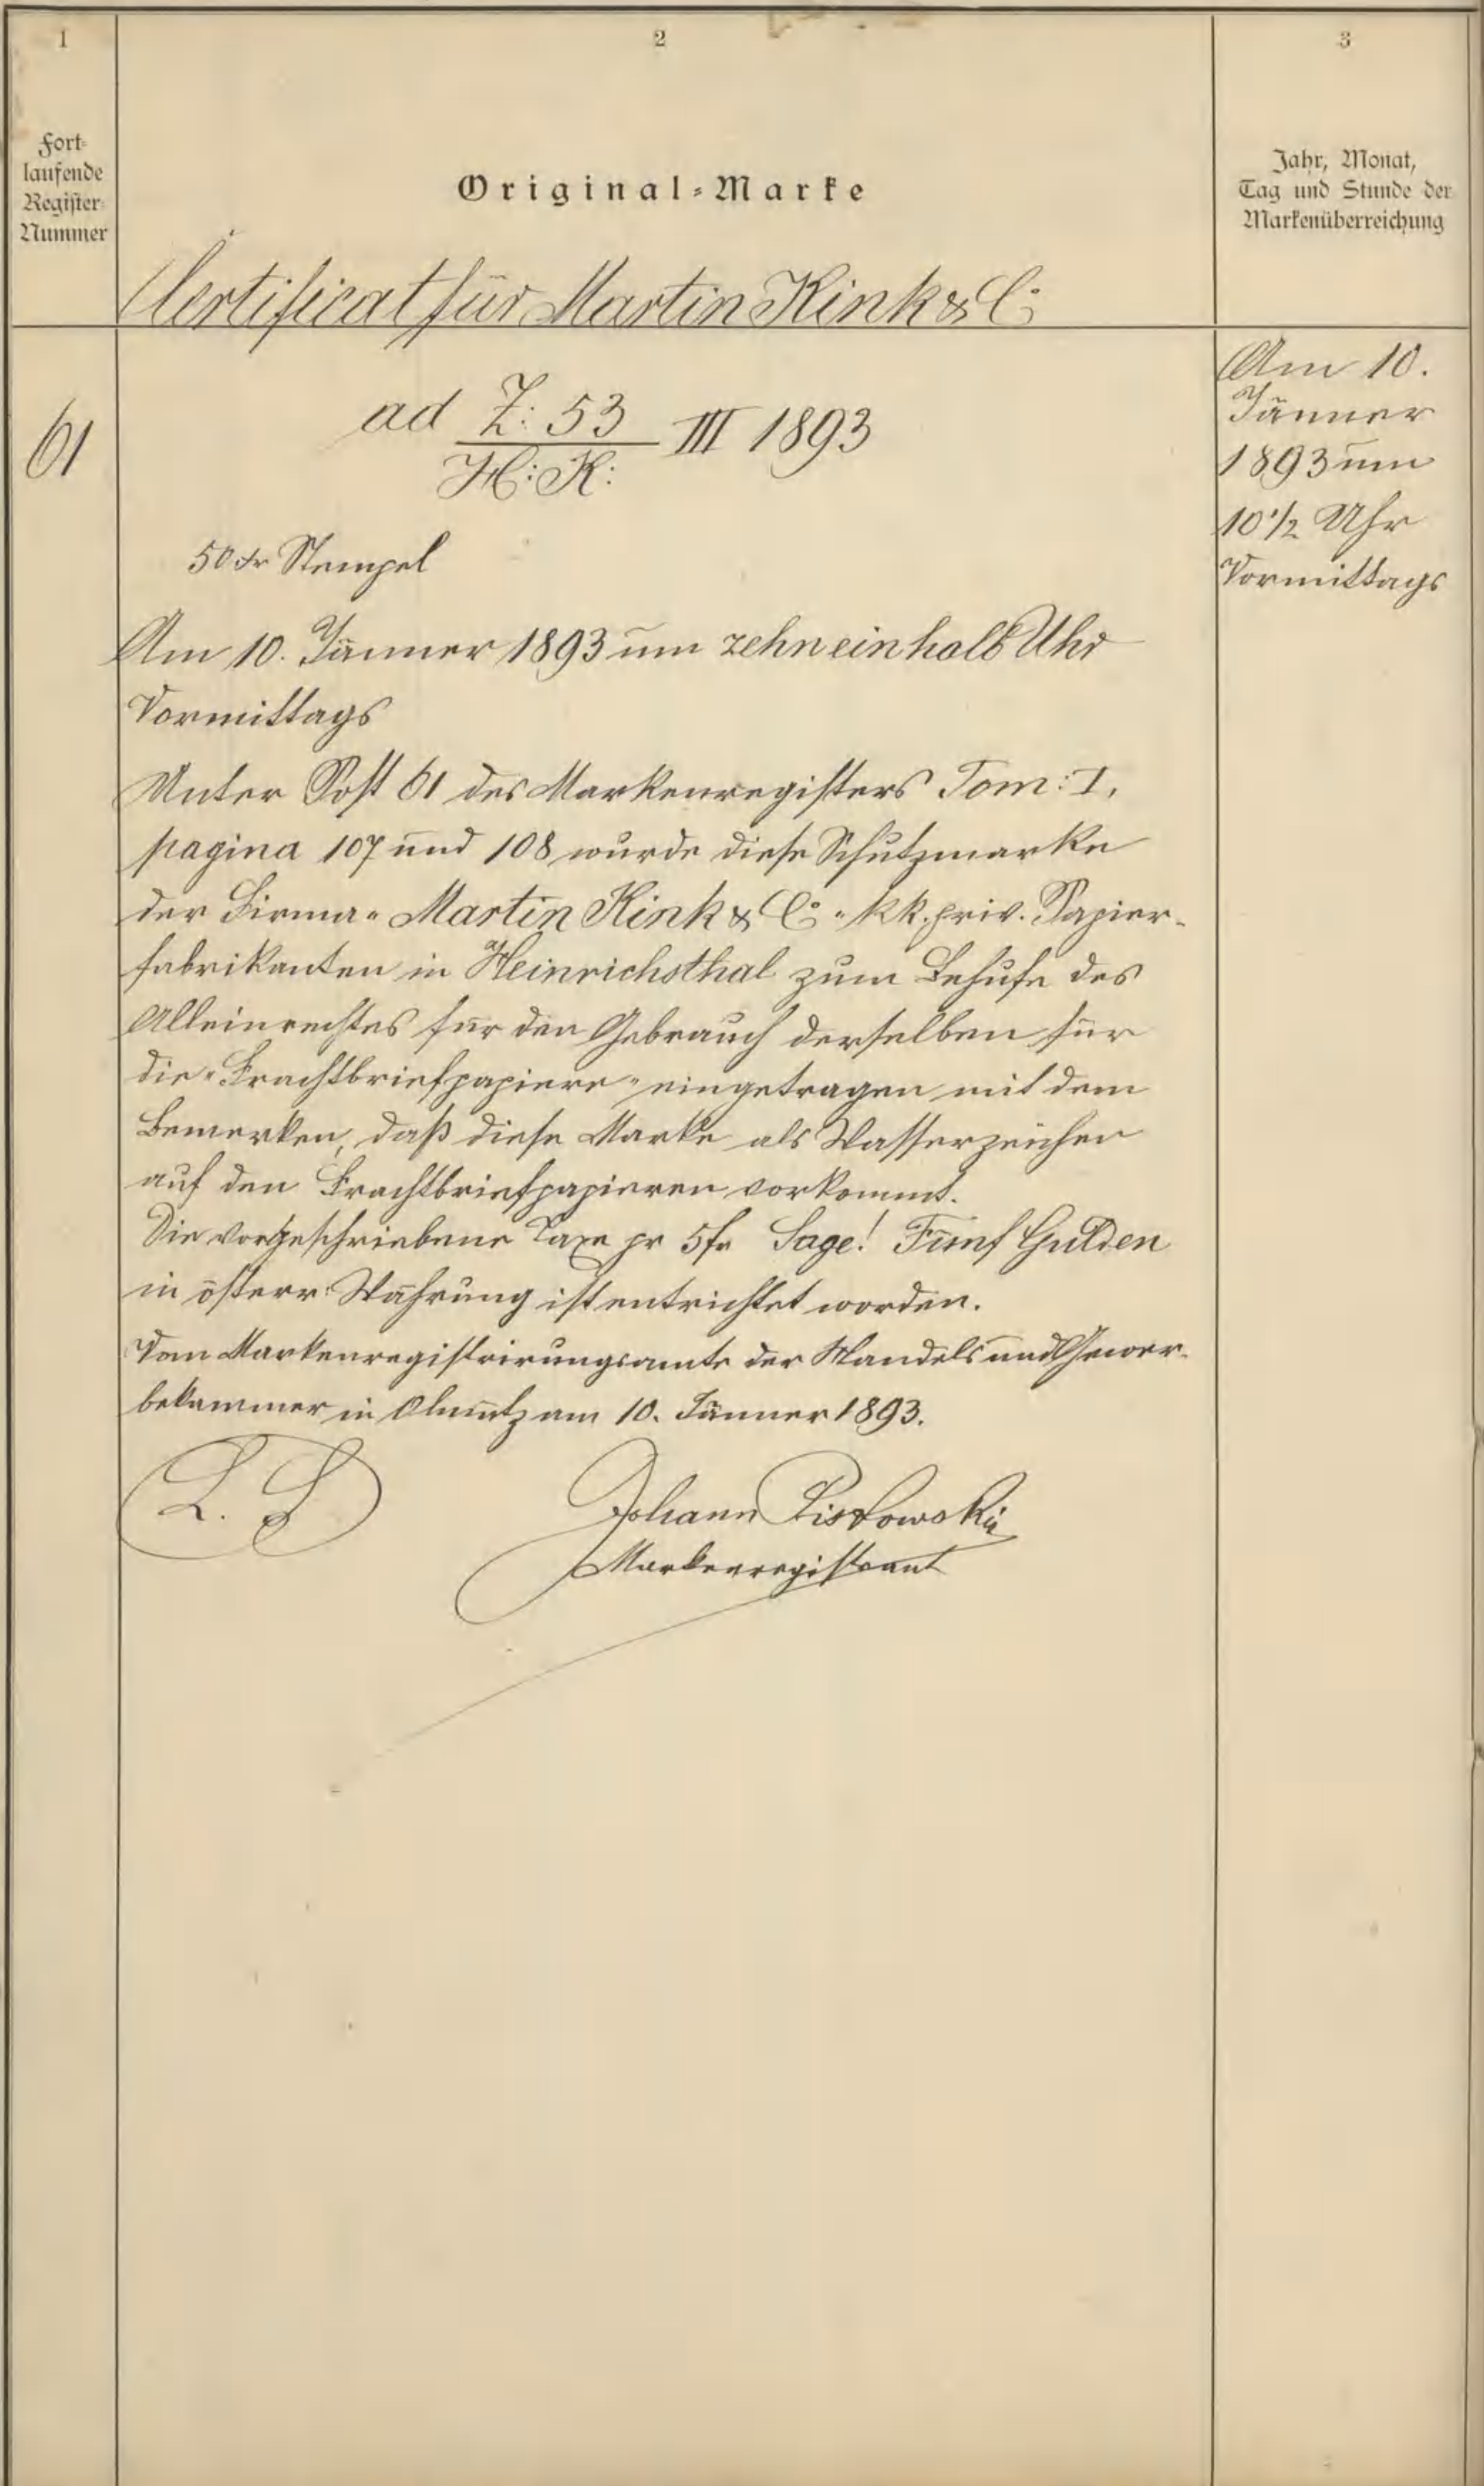 1
2
3
Fort-
laufende
Register-
Nummer
Original-Marke
Jahr, Monat,
Tag und Stunde der
Markenüberreichung
Certificat für Martin Kink & Co
61
ad Z: 53 III 1893
H: K:
50 xr Stempel
Am 10. Jänner 1893 um zehneinhalb Uhr
Vormittags
Unter Post 61 des Markenregisters Tom: I,
pagina 107 und 108 wurde diese Schutzmarke
der Firma "Martin Kink & Co" kk. priv. Papier-
fabrikanten in Heinrichsthal zum Behufe des
Alleinrechtes für den Gebrauch derselben für
die "Frachtbriefpapiere" eingetragen mit dem
Bemerken, daß diese Marke als Wasserzeichen
auf den Frachtbriefpapieren vorkommt.
Die vorgeschriebene Taxe pr 5 fr Sage! Fünf Gulden
in österr: Währung ist entrichtet worden.
Vom Markenregistrirungsamte der Handels und Gewer-
bekammer in Olmütz am 10. Jänner 1893.
L. S.
Johann
Markenregistrant
Am 10.
Jänner
1893 um
10 1/2 Uhr
Vormittags